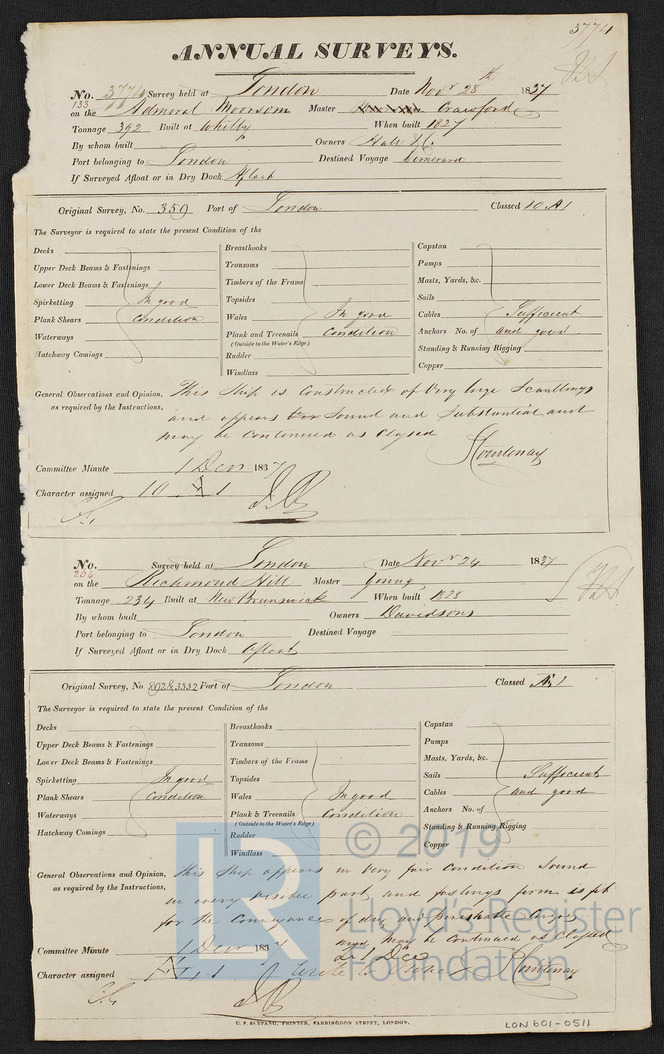 3774
ANNUAL SURVEYS.
No. 3774 Survey held at London Date Novr 28th 1837
133
on the Admiral Moorsom Master Crawford
Tonnage 392 Built at Whitby When built 1827
By whom built Owners Hall & Co.
Port belonging to London Destined Voyage Demerara
If Surveyed Afloat or in Dry Dock Afloat
Original Survey, No. 359 Port of London Classed 10 A1
The Surveyor is required to state the present Condition of the
Decks
Upper Deck Beams & Fastenings
Lower Deck Beams & Fastenings
Spirketting In good
Plank Shears Condition
Waterways
Hatchway Comings
Breasthooks
Transoms
Timbers of the Frame
Topsides
Wales In good
Plank and Treenails Condition
(Outside to the Water's Edge)
Rudder
Windlass
Capstan
Pumps
Masts, Yards, &c.
Sails
Cables Sufficient
Anchors No. of and good
Standing & Running Rigging
Copper
General Observations and Opinion, This Ship is Constructed of Very large Scantlings
as required by the Instructions, and appears Sound and Substantial and
may be Continued as Classed
Courtenay
Committee Minute 1 Decr 1837
Character assigned 10 A 1
No. Survey held at London Date Novr 24 1837
264
on the Richmond Hill Master Young
Tonnage 234 Built at New Brunswick When built 1828
By whom built Owners Davidsons
Port belonging to London Destined Voyage
If Surveyed Afloat or in Dry Dock Afloat
Original Survey, No. 8928,3332 Port of London Classed Æ 1
The Surveyor is required to state the present Condition of the
Decks
Upper Deck Beams & Fastenings
Lower Deck Beams & Fastenings
Spirketting In good
Plank Shears Condition
Waterways
Hatchway Comings
Breasthooks
Transoms
Timbers of the Frame
Topsides
Wales In good
Plank & Treenails Condition
(Outside to the Water's Edge)
Rudder
Windlass
Capstan
Pumps
Masts, Yards, &c.
Sails Sufficient
Cables and good
Anchors No. of
Standing & Running Rigging
Copper
General Observations and Opinion, This Ship appears in Very fair Condition Sound
as required by the Instructions, in every visible part, and fastings firm is fit
for the Conveyance of dry and perishable Cargoes
and may be Continued as Classed
Committee Minute 1 Decr 1837
Character assigned Æ 1 Courtenay
C. F. SEYFANG, PRINTER, FARRINGDON STREET, LONDON.
LON 601-0511
LR © 2019
Lloyd's Register
Foundation